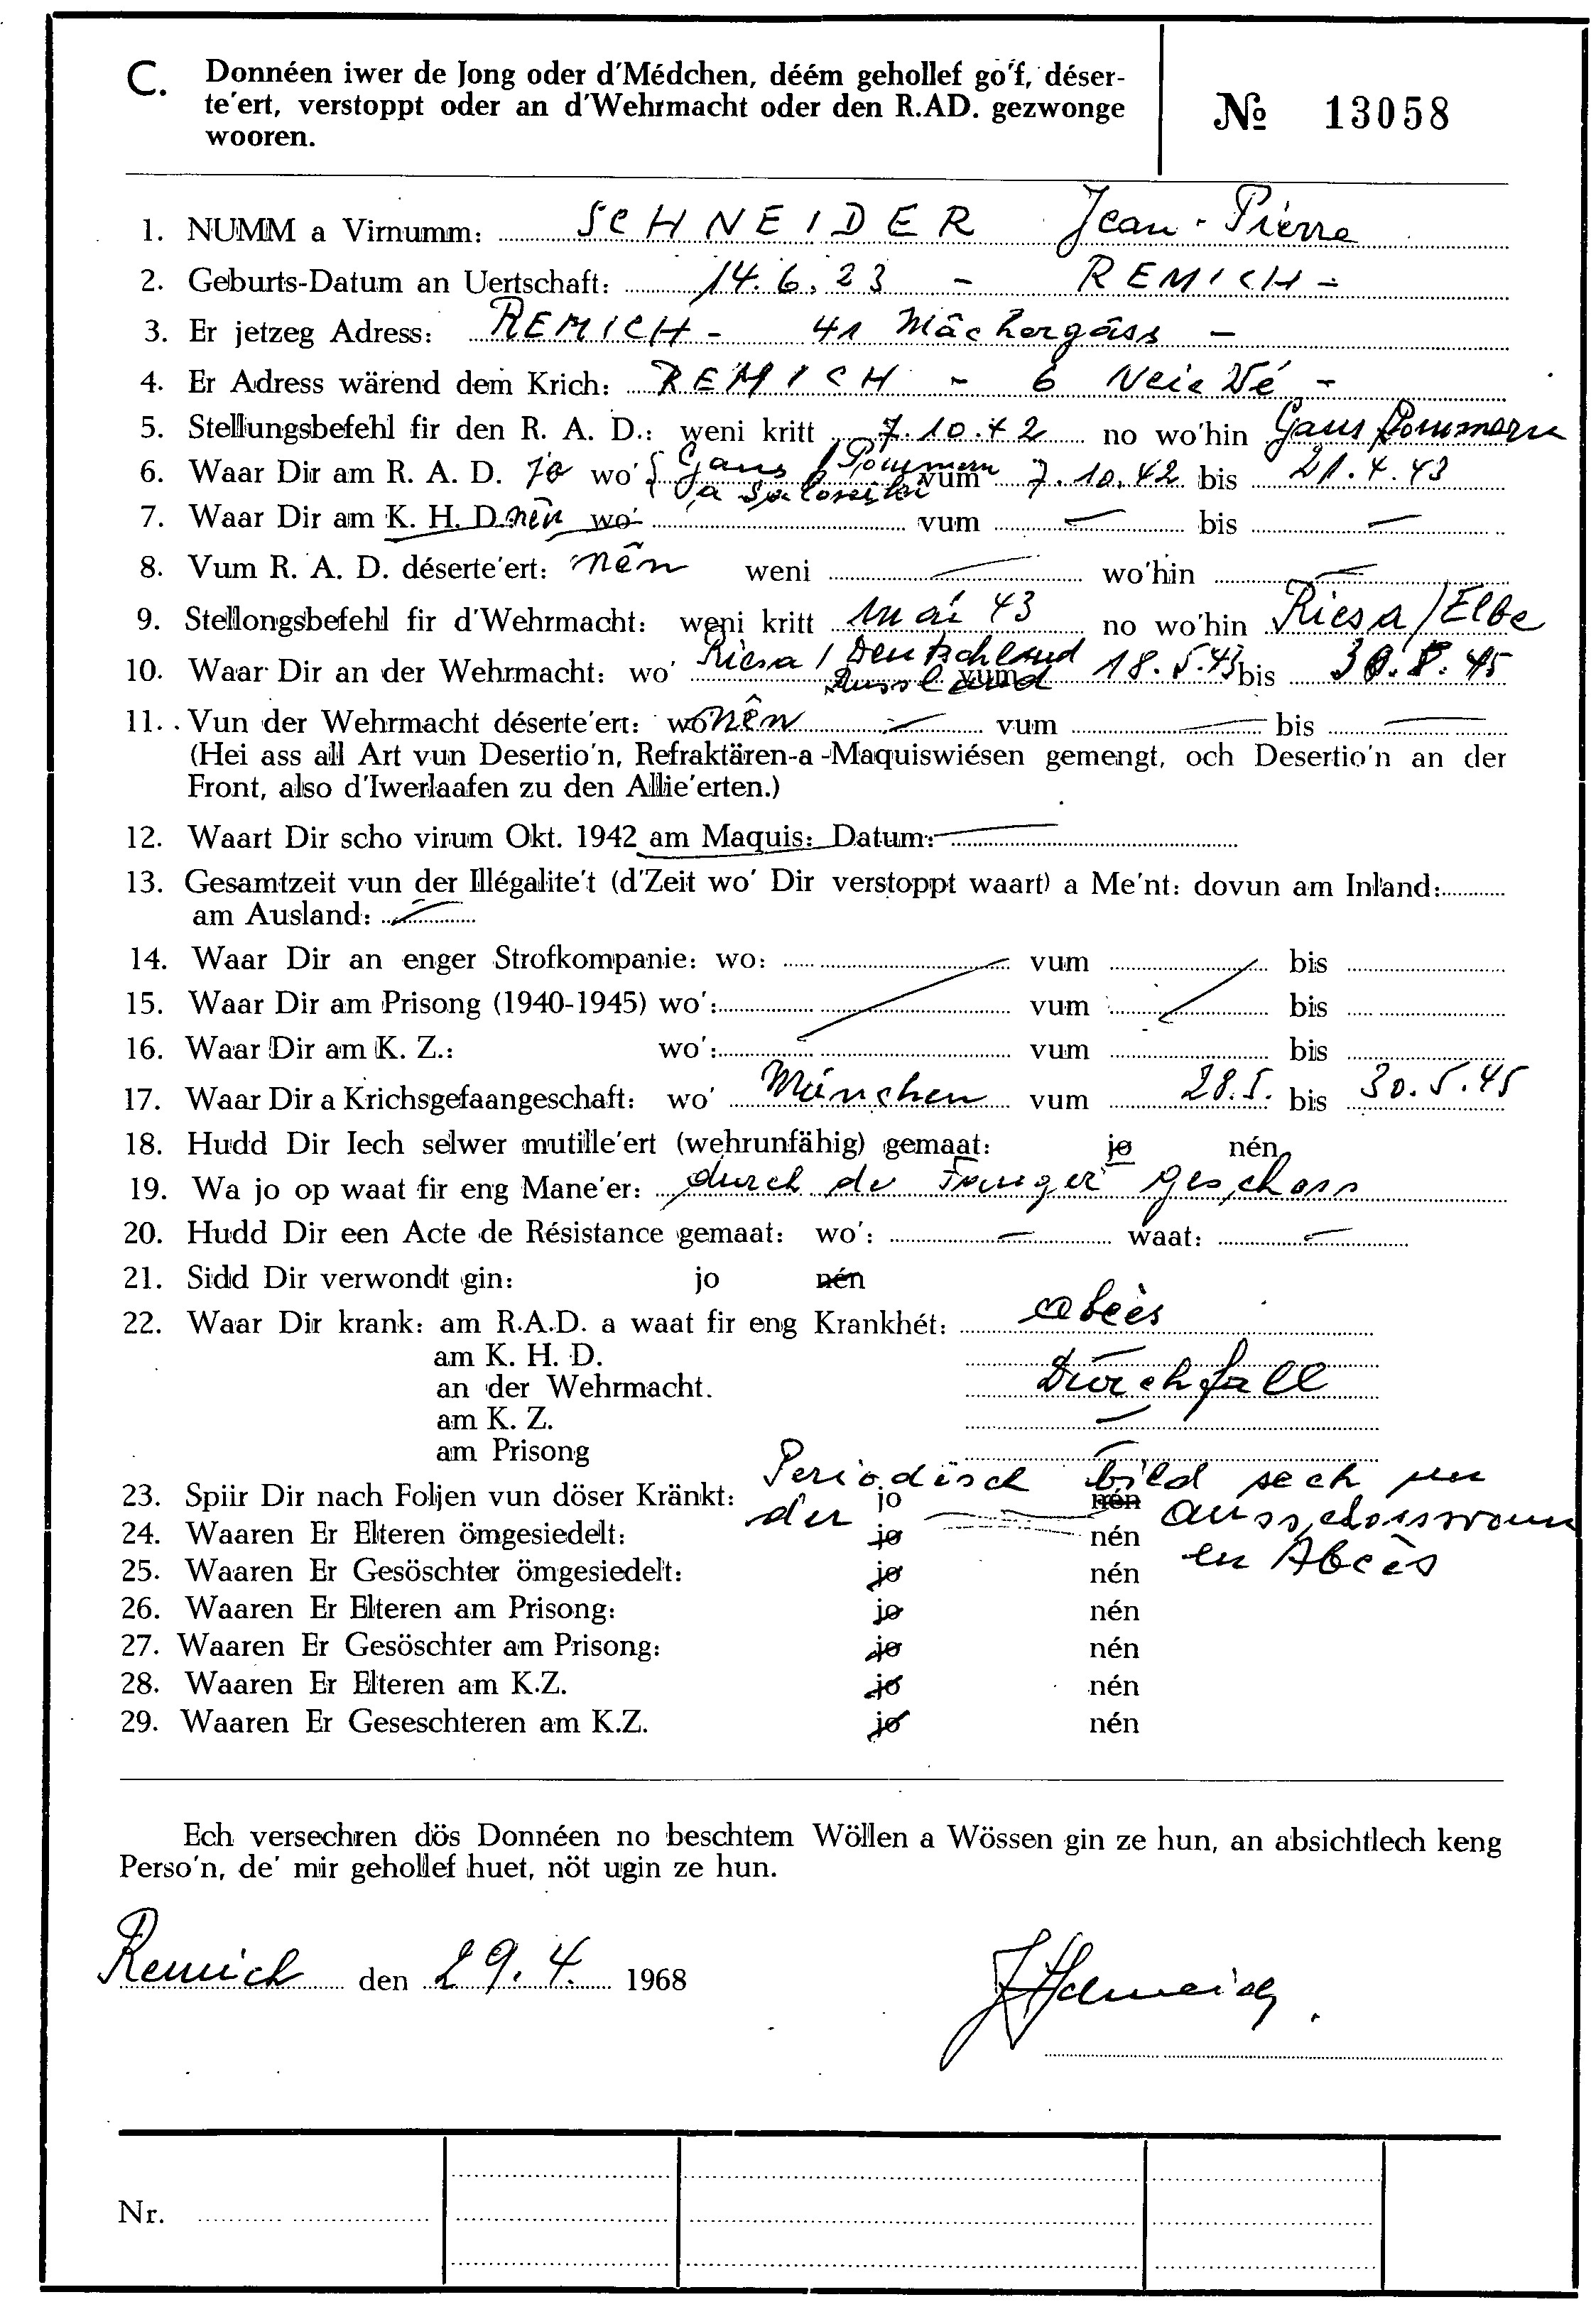 C. Donnéen iwer de Jong oder d'Médchen, déém gehollef go'f, déser-
te'ert, verstoppt oder an d'Wehrmacht oder den R.AD. gezwonge
wooren.
№ 13058
1. NUMM a Virnumm: SCHNEIDER Jean-Pierre
2. Geburts-Datum an Uertschaft: 14.6.23 - REMICH -
3. Er jetzeg Adress: REMICH - 41 Mâchergâss -
4. Er Adress wärend dem Krich: REMICH - 6 Neie Wé -
5. Stellungsbefehl fir den R. A. D.: weni kritt 7.10.42 no wo'hin Gans Pommern
6. Waar Dir am R. A. D. jo wo' Gans / Pommern vum 7.10.42 bis 21.4.43
7. Waar Dir am K. H. D. nên wo' vum — bis —
8. Vum R. A. D. déserte'ert: nên weni — wo'hin —
9. Stellongsbefehl fir d'Wehrmacht: weni kritt Mai 43 no wo'hin Riesa/Elbe
10. Waar Dir an der Wehrmacht: wo' Riesa / Deutschland vum 18.5.43 bis 30.5.45
Russland
11. Vun der Wehrmacht déserte'ert: wo nên — vum — bis —
(Hei ass all Art vun Desertio'n, Refraktären-a -Maquiswiésen gemengt, och Desertio'n an der
Front, also d'Iwerlaafen zu den Allie'erten.)
12. Waart Dir scho virum Okt. 1942 am Maquis: Datum: —
13. Gesamtzeit vun der Illégalite't (d'Zeit wo' Dir verstoppt waart) a Me'nt: dovun am Inland:
am Ausland: —
14. Waar Dir an enger Strofkompanie: wo: vum bis
15. Waar Dir am Prisong (1940-1945) wo': vum bis
16. Waar Dir am K. Z.: wo': vum bis
17. Waar Dir a Krichsgefaangeschaft: wo' München vum 28.5. bis 30.5.45
18. Hudd Dir Iech selwer mutille'ert (wehrunfähig) gemaat: jo nén
19. Wa jo op waat fir eng Mane'er: durch de Fanger geschoss
20. Hudd Dir een Acte de Résistance gemaat: wo': — waat: —
21. Sidd Dir verwondt gin: jo nén
22. Waar Dir krank: am R.A.D. a waat fir eng Krankhét: abcès
am K. H. D. —
an der Wehrmacht. Durchfall
am K. Z. —
am Prisong —
23. Spiir Dir nach Foljen vun döser Kränkt: jo nén Periodisch bild sech un
der Ausschosswonn
en Abcès
24. Waaren Er Elteren ömgesiedelt: jo nén
25. Waaren Er Gesöschter ömgesiedelt: jo nén
26. Waaren Er Elteren am Prisong: jo nén
27. Waaren Er Gesöschter am Prisong: jo nén
28. Waaren Er Elteren am K.Z. jo nén
29. Waaren Er Geseschteren am K.Z. jo nén
Ech versechren dös Donnéen no beschtem Wöllen a Wössen gin ze hun, an absichtlech keng
Perso'n, de' mir gehollef huet, nöt ugin ze hun.
Remich den 29.4. 1968
JSchneider
Nr.